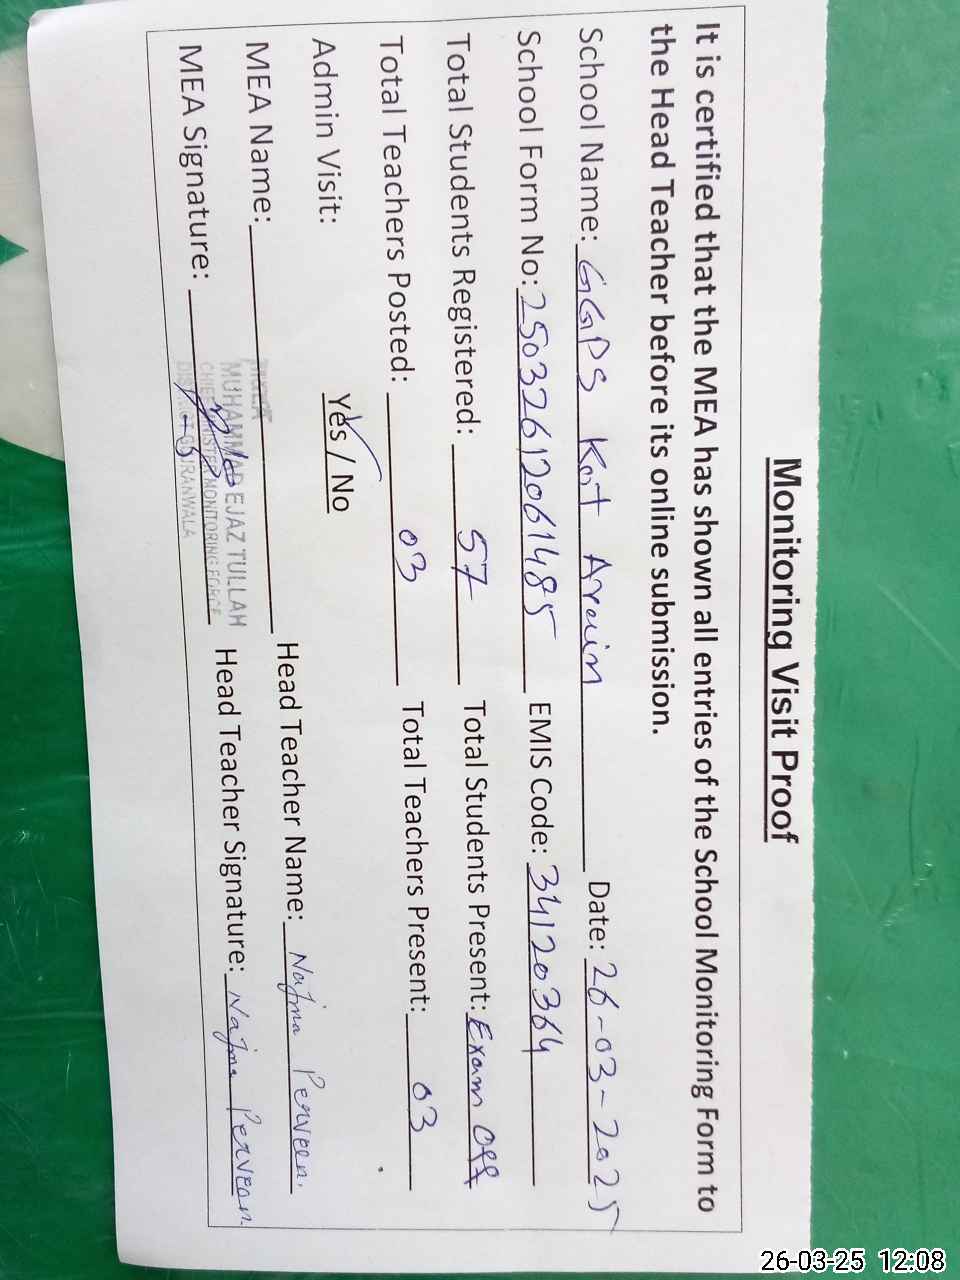 Monitoring Visit Proof
It is certified that the MEA has shown all entries of the School Monitoring Form to
the Head Teacher before its online submission.
School Name: GGPS Kot Arain Date: 26-03-2025
School Form No: 25032612061485 EMIS Code: 34120364
Total Students Registered: 57 Total Students Present: Exam Off
Total Teachers Posted: 03 Total Teachers Present: 03
Admin Visit: Yes / No
MEA Name: Head Teacher Name: Najma Perveen.
MUHAMMAD EJAZ TULLAH
CHIEF MINISTER MONITORING FORCE
DISTRICT GUJRANWALA
MEA Signature: Head Teacher Signature: Najma Perveen
26-03-25 12:08